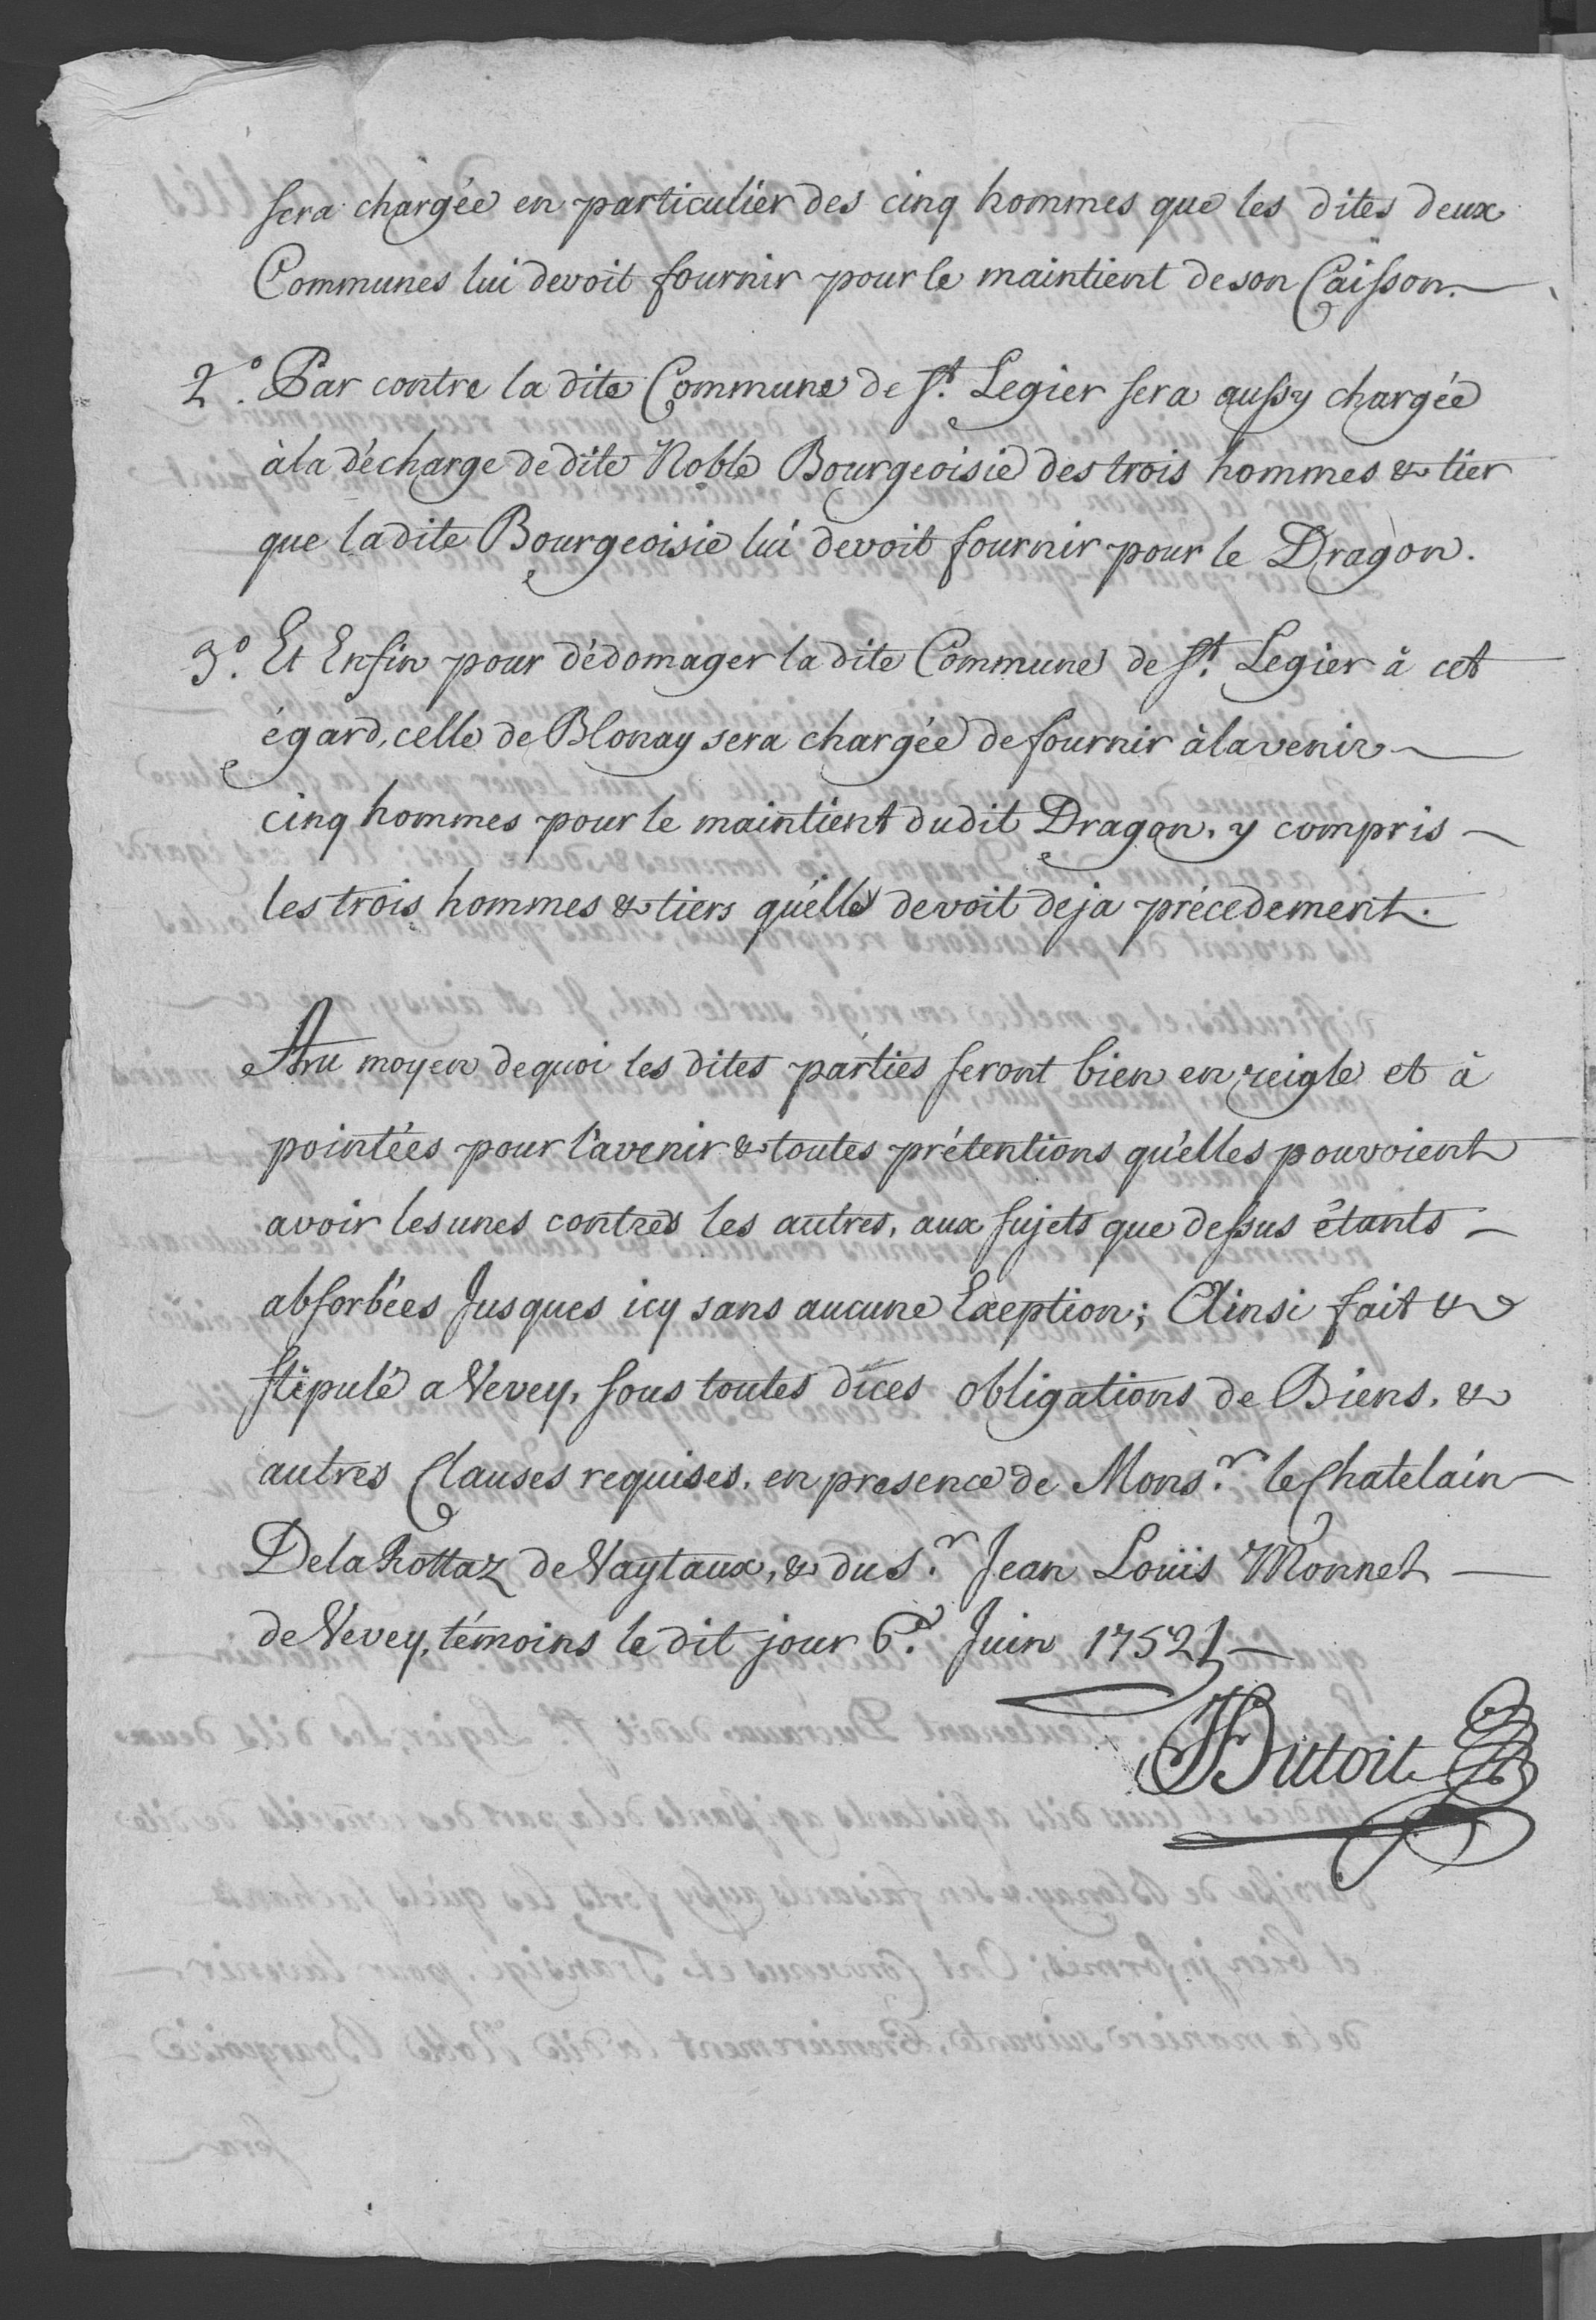 sera chargée en particulier des cinq hommes que les dites deux
Communes lui devoit fournir pour le maintient de son Caisson.
2.° Par contre la dite Commune de St. Legier sera aussy chargée
à la décharge de dite Noble Bourgeoisie des trois hommes & tier
que ladite Bourgeoisie lui devoit fournir pour le Dragon.
3.° Et Enfin pour dédomager la dite Commune de St. Legier à cet
égard, celle de Blonay sera chargée de fournir à lavenir
cinq hommes pour le maintient dudit Dragon, y compris
les trois hommes & tiers qu'elle devoit deja précedement.
Au moyen dequoi les dites parties seront bien en reigle et à
pointées pour l'avenir & toutes prétentions qu'elles pouvoient
avoir les unes contres les autres, aux sujets que dessus étants
absorbées Jusques icy sans aucune Exeption; Ainsi fait &
stipulé a Vevey, sous toutes dices obligations de Biens, &
autres Clauses requises, en presence de Mons.r le Chatelain
De la Rottaz de Vaytaux, & du S.r Jean Louïs Monnet
de Vevey, témoins le dit jour 6.e Juin 1752
JDutoit